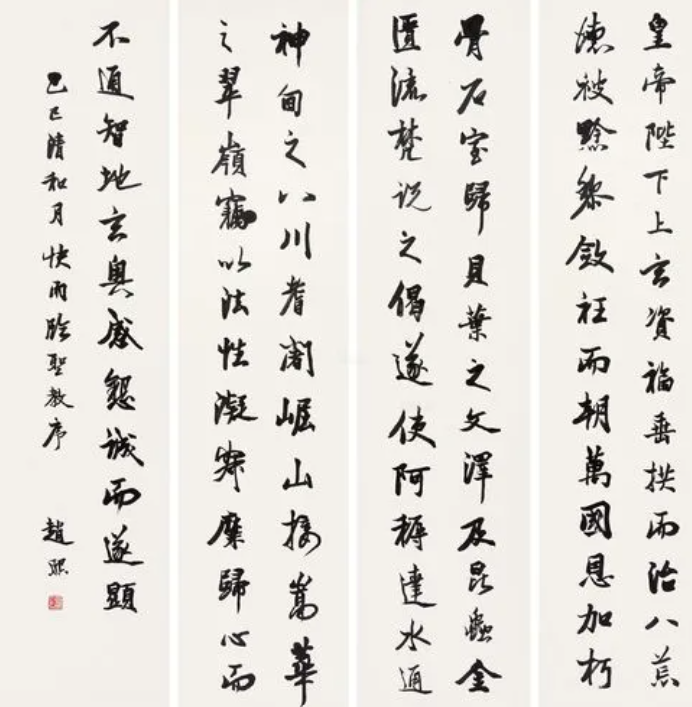 皇帝陛下上玄資福垂拱而治八荒
德被黔黎斂衽而朝萬國恩加朽
骨石室歸貝葉之文澤及昆蟲金
匱流梵説之偈遂使阿耨達水通
神甸之八川耆闍崛山接嵩華
之翠嶺竊以法性凝寂靡歸心而
不通智地玄奥感懇誠而遂顯
己巳清和月快雨臨聖教序 趙熙